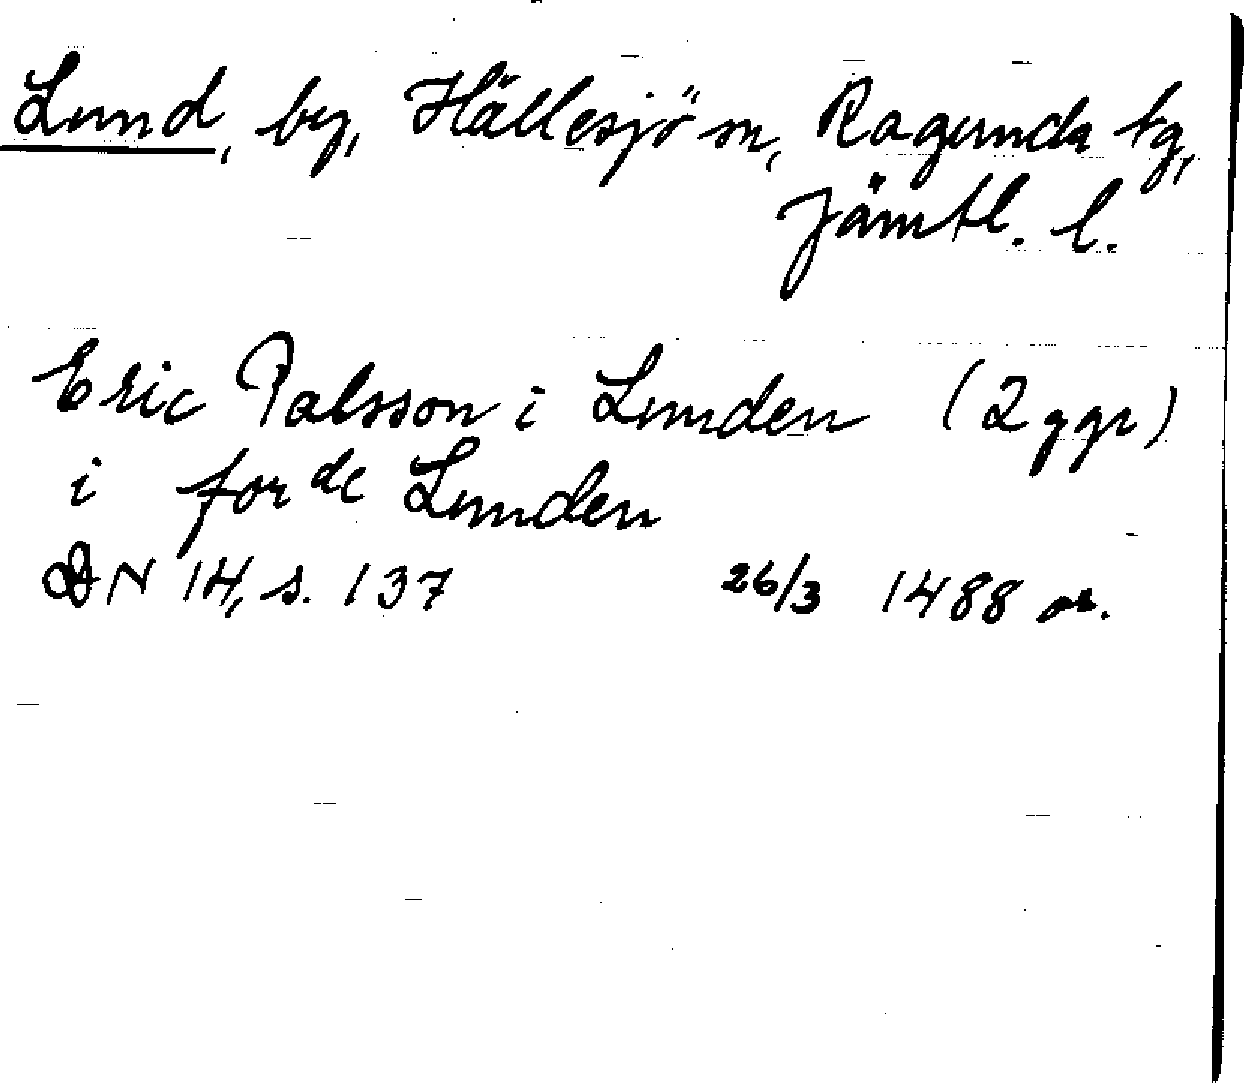 Lund, by, Hällesjö sn, Ragunda tg,
Jämtl. l.
Eric Palsson i Lunden (2 ggr)
i for de Lunden
DN 14, s. 137 26/3 1488 or.